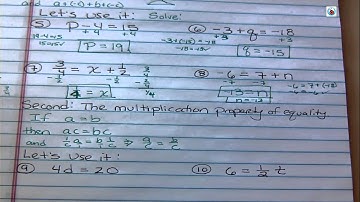 Let's use it: Solve:
⑤ P - 4 = 15
+4 +4
19-4=15
15=15✓
P = 19
⑥ -3 + q = -18
+3 +3
-3+(-15)=-18
-18=-18✓
q = -15
⑦ 3/4 = x + 1/2
¼ = x
⑧ -6 = 7 + n
-7 -7
-13 = n
n = -13
-6=7+(-13)
-6=-6✓
Second: The multiplication property of equality
If a=b
then ac=bc
Let's use it:
⑨ 4d = 20
⑩ 6 = ½ t